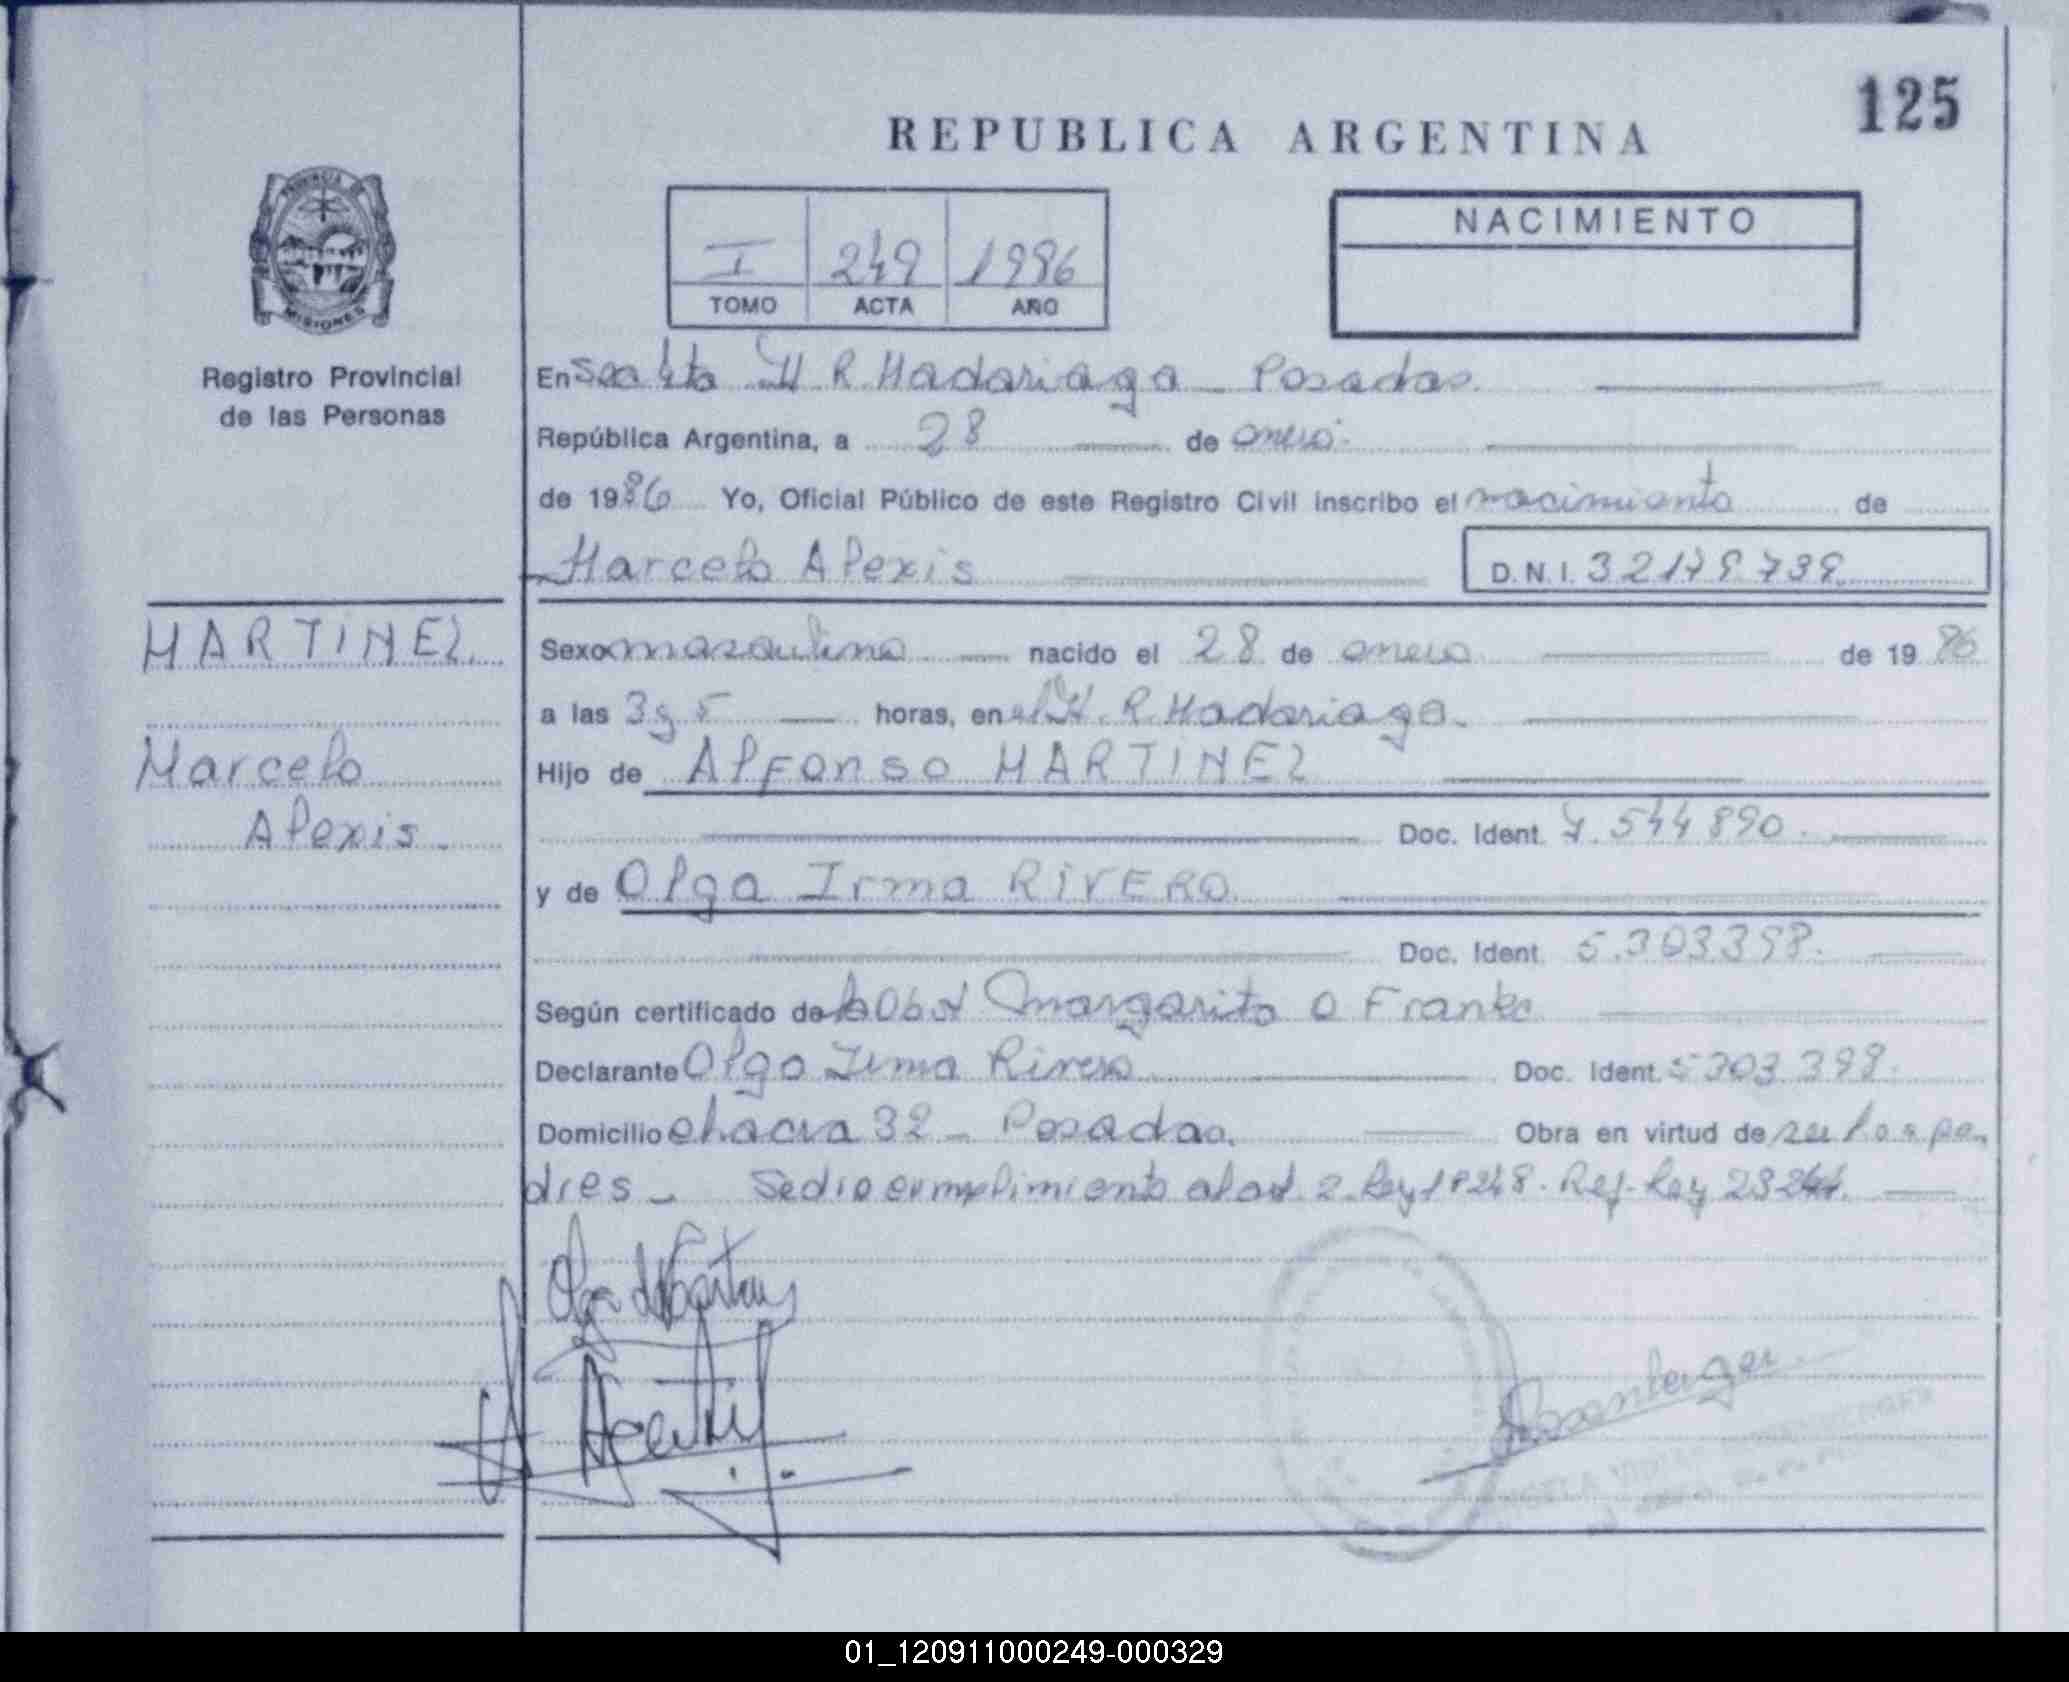 125
REPUBLICA ARGENTINA
PROVINCIA DE
MISIONES
NACIMIENTO
I 249 1986
TOMO ACTA AÑO
Registro Provincial
de las Personas
En H. R. Madariaga - Posadas.
República Argentina, a 28 de enero
de 1986 Yo, Oficial Público de este Registro Civil inscribo el nacimiento de
Marcelo Alexis D.N.I. 32179739
MARTINEZ
Marcelo
Alexis.
Sexo masculino nacido el 28 de enero de 1986
a las 3 y 5 horas, en el H. R. Madariaga.
Hijo de Alfonso MARTINEZ
Doc. Ident. 7.544890.
y de Olga Irma RIVERO
Doc. Ident. 5.303398.
Según certificado de la Obst Margarita O Franke
Declarante Olga Irma Rivero Doc. Ident. 5303398.
Domicilio chacra 32 - Posadas. Obra en virtud de ser los pa
dres - Se dio cumplimiento al art 2. Ley 18248. Ref. Ley
01_120911000249-000329